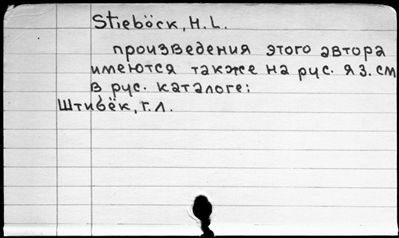 Stieböck, H. L.
произведения этого автора
имеются также на рус. яз. см
в рус. каталоге:
Штибёк, Г. Л.